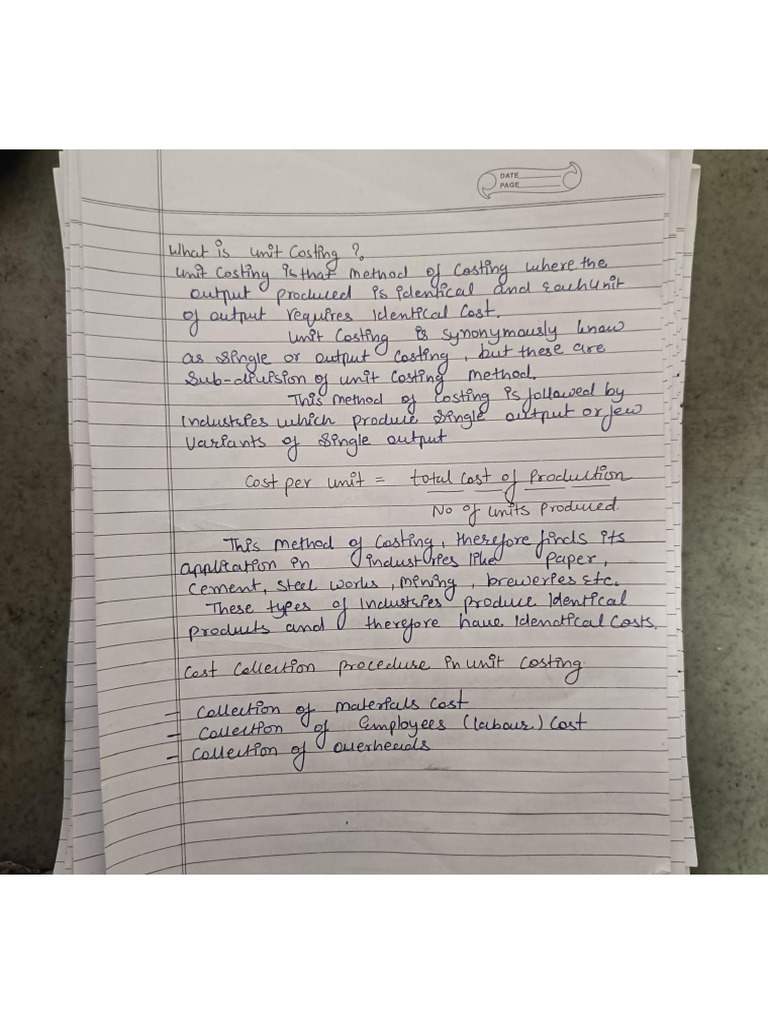 DATE
PAGE
What is unit costing ?
Unit costing is that method of costing where the
output produced is identical and each unit
of output requires identical cost.
Unit costing is synonymously know
as single or output costing, but these are
sub-division of unit costing method.
This method of costing is followed by
industries which produce single output or few
variants of single output
Cost per unit = total cost of production
No of units produced.
This method of costing, therefore finds its
application in industries like paper,
cement, steel works, mining, breweries etc.
These types of industries produce identical
products and therefore have idenatical costs.
Cost collection procedure in unit costing
- Collection of materials cost
- Collection of Employees (labour) cost
- Collection of overheads